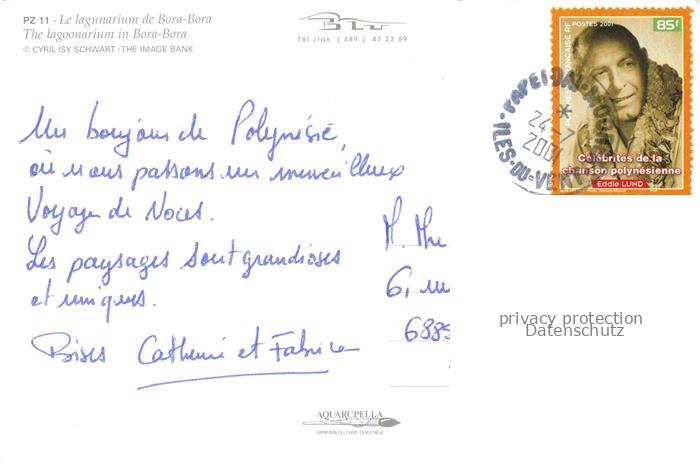 PZ 11 - Le lagunarium de Bora-Bora
The lagoonarium in Bora-Bora
© CYRIL ISY SCHWART / THE IMAGE BANK
Tél./fax ( 689 ) 43 23 69
POSTES 2001
85f
Célébrités de la
chanson polynésienne
Eddie LUND
24-7
2001
ILES-DU-VENT
Un bonjour de Polynésie,
où nous passons un merveilleux
Voyage de Noces.
Les paysages sont grandioses
et uniques.
Bises Catherine et Fabrice
M.
6,
privacy protection
Datenschutz
AQUARUPELLA